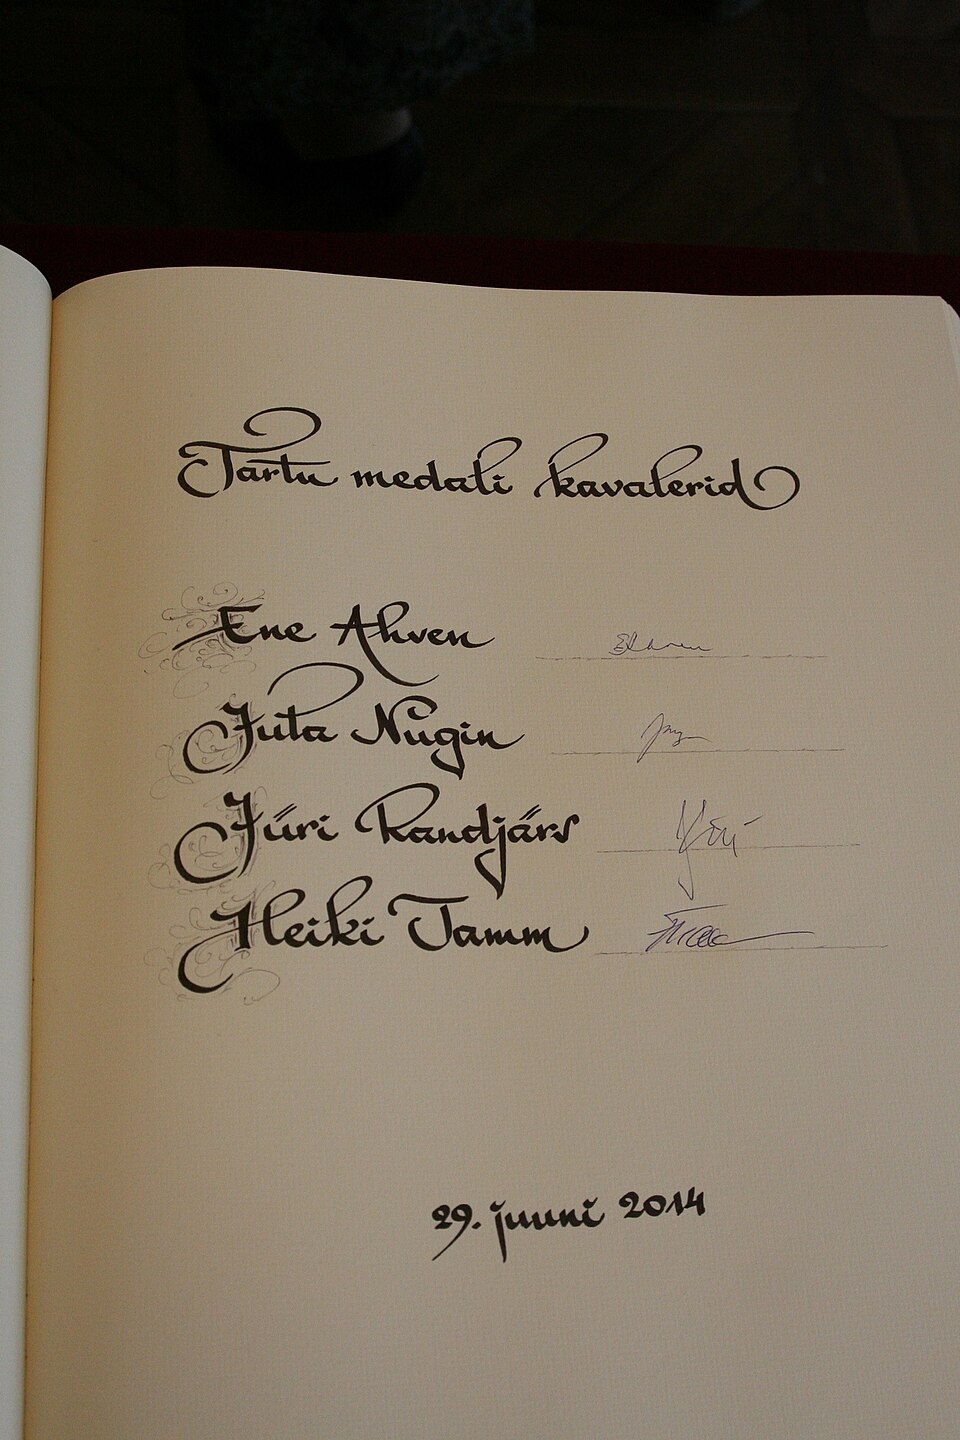 Tartu medali kavalerid
Ene Ahven
Juta Nugin
Jüri Randjärv
Heiki Tamm
29. juuni 2014